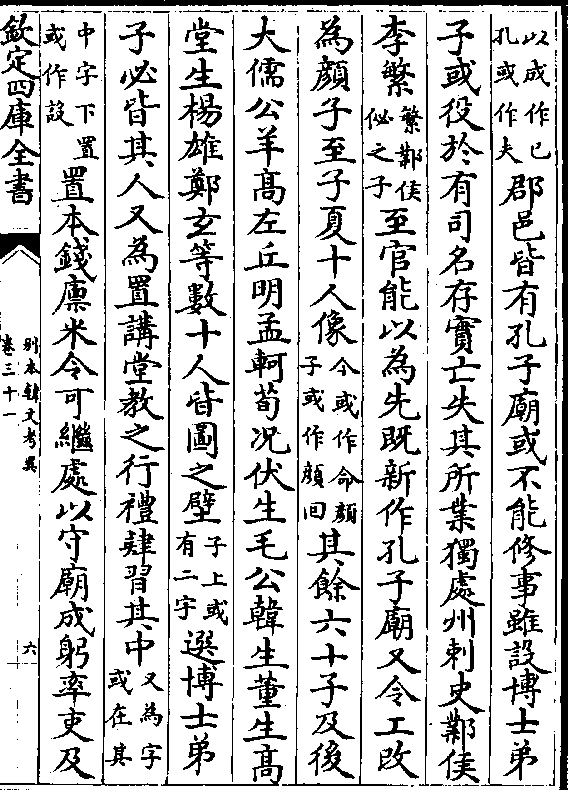 以成作已孔或作夫郡邑皆有孔子廟或不能修事雖設博士弟
子或役於有司名存實亡失其所業獨處州刺史鄴侯
李繁繁鄴侯佖之子至官能以為先既新作孔子廟又令工改
為顔子至子夏十人像今或作命顔子或作顔回其餘六十子及後
大儒公羊髙左丘明孟軻荀况伏生毛公韓生董生髙
堂生楊雄鄭𤣥等數十人皆圖之壁子上或有二字選博士弟
子必皆其人又為置講堂教之行禮肄習其中又為字或在其
中字下置或作設置本錢廪米令可繼處以守廟成躬率吏及
欽定四庫全書
别本韓文考異
卷三十一
六